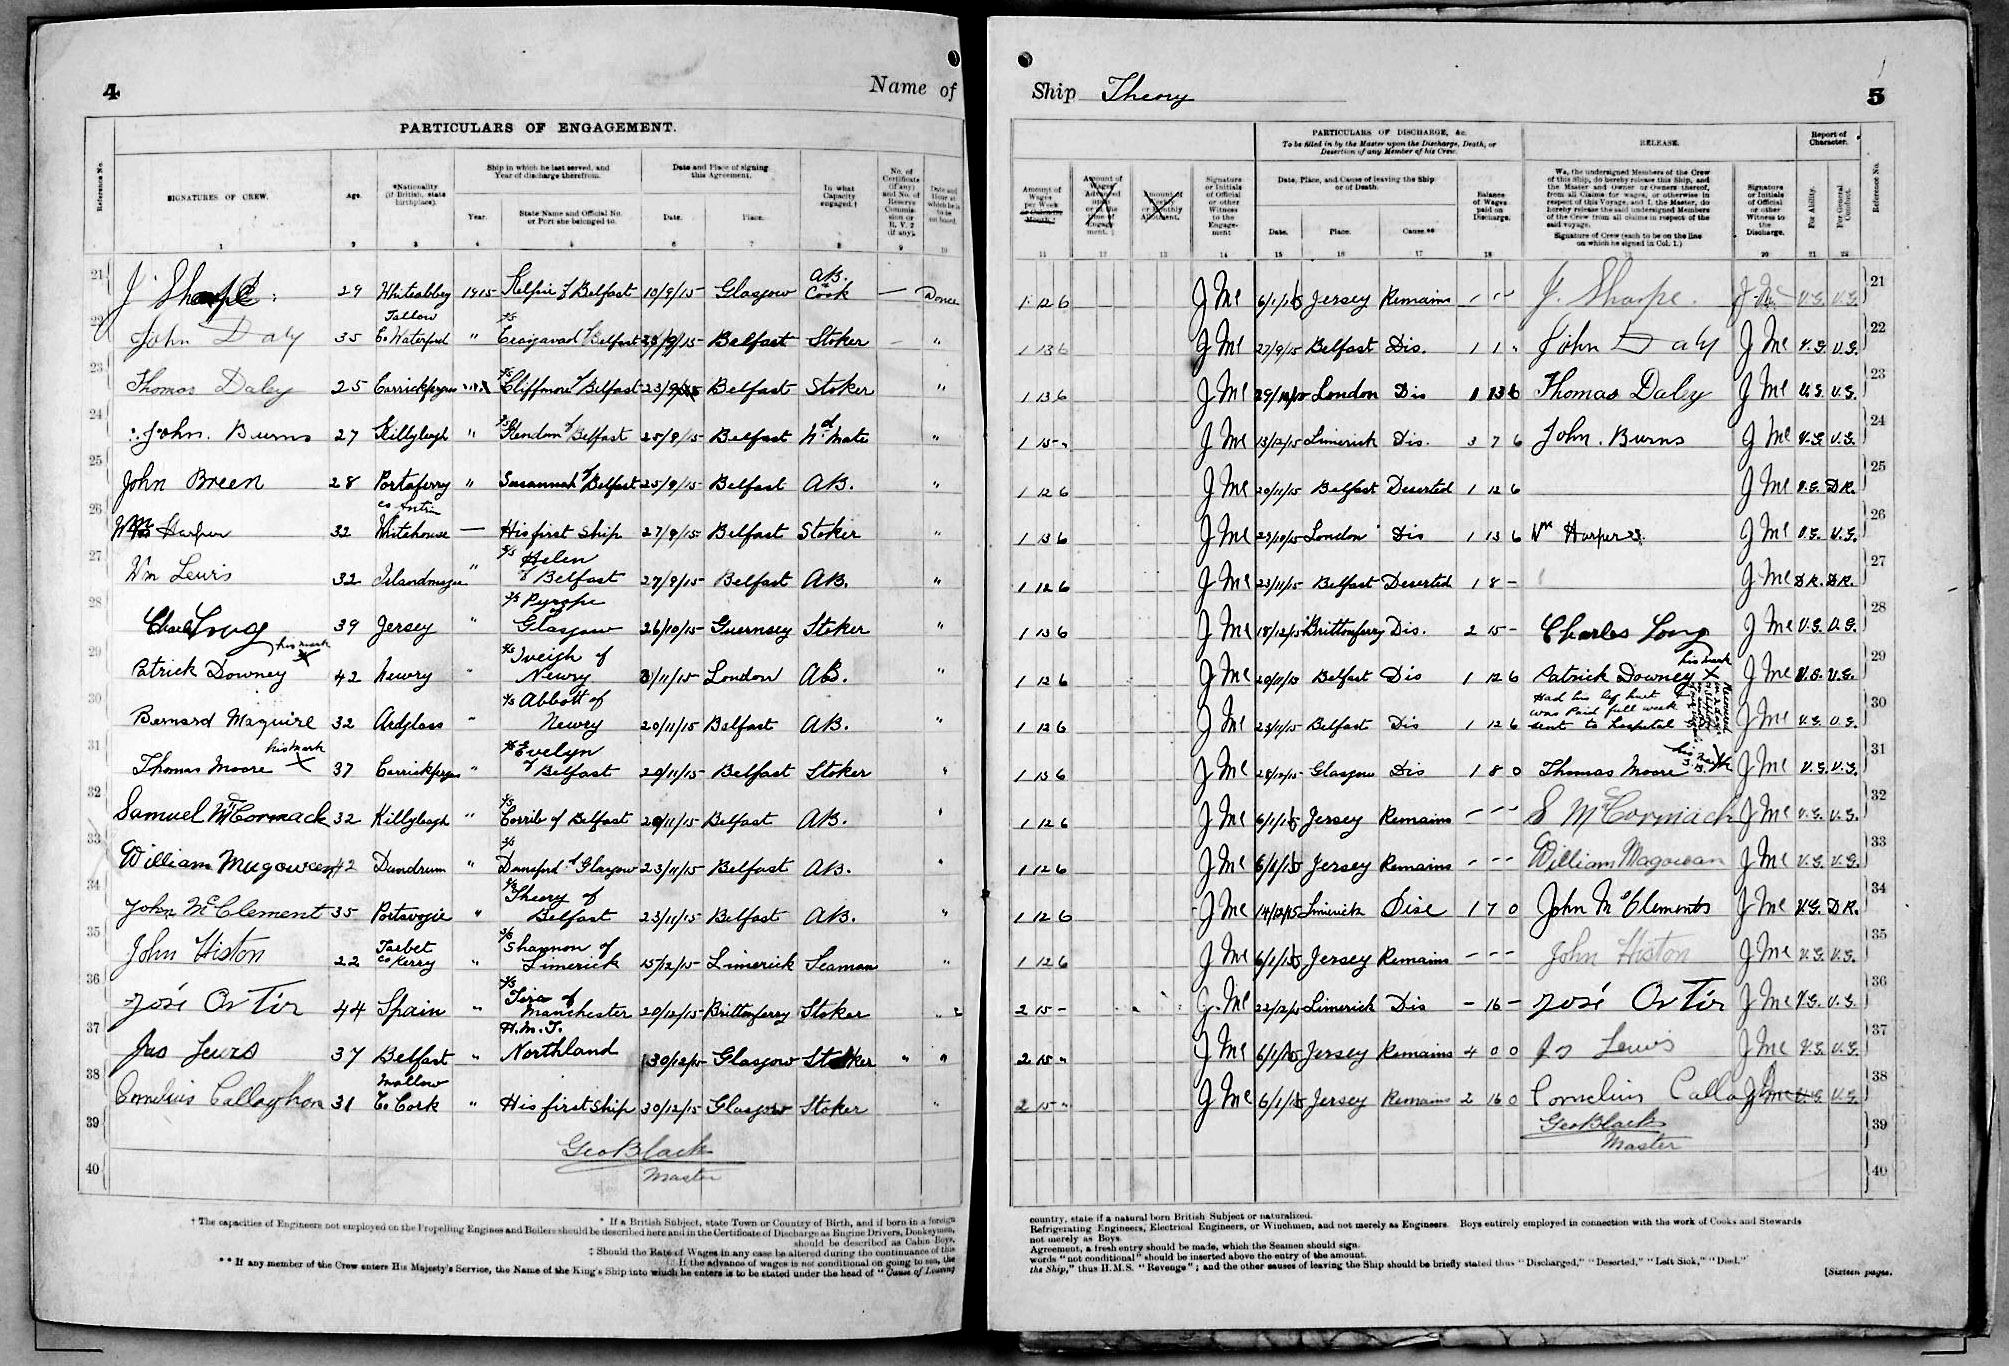 4
Name of
PARTICULARS OF ENGAGEMENT.
Reference No.
SIGNATURES OF CREW.
Age.
*Nationality (if British, state birthplace).
Ship in which he last served, and Year of discharge therefrom.
Year.
State Name and Official No. or Port she belonged to.
Date and Place of signing this Agreement.
Date.
Place.
In what Capacity engaged.†
No. of Certificate (if any) and No. of Reserve Commission or R. V. 2 (if any).
Date and Hour at which he is to be on board.
1 2 3 4 5 6 7 8 9 10
21 J Sharpe 29 Whiteabbey 1915 Kelpie of Belfast 10/9/15 Glasgow AB. & Cook — Donce
22 John Daly 35 Tallow Co Waterford " S/S Craigavad of Belfast 23/9/15 Belfast Stoker — "
23 Thomas Daley 25 Carrickfergus S/S Cliffmore of Belfast 23/9/15 Belfast Stoker "
24 John. Burns 27 Killyleagh " S/S Glendon of Belfast 25/9/15 Belfast 2nd mate "
25 John Breen 28 Portaferry " Susannah of Belfast 25/9/15 Belfast AB. "
26 Wm Harper 32 co Antrim Whitehouse — His first Ship 27/9/15 Belfast Stoker "
27 Wm Lewis 32 Islandmagee " S/S Helen of Belfast 27/9/15 Belfast AB. "
28 Charles Long 39 Jersey " S/S Pyrope of Glasgow 26/10/15 Guernsey Stoker "
29 Patrick Downey his mark X 42 Newry " S/S Iveigh of Newry 3/11/15 London AB. "
30 Bernard Maguire 32 Ardglass " S/S Abbott of Newry 20/11/15 Belfast AB. "
31 Thomas Moore his mark X 37 Carrickfergus " S/S Evelyn of Belfast 20/11/15 Belfast Stoker "
32 Samuel McCormack 32 Killyleagh " S/S Corrib of Belfast 20/11/15 Belfast AB. "
33 William Mugowen 42 Dundrum " S/S Dunsford of Glasgow 23/11/15 Belfast AB. "
34 John McClement 35 Portavogie " S/S Theory of Belfast 23/11/15 Belfast AB. "
35 John Histon 22 Tarbet co Kerry " S/S Shannon of Limerick 15/12/15 Limerick Seaman "
36 José Ortir 44 Spain " S/S Tira of Manchester 20/12/15 Brittonferry Stoker "
37 Jas Lewis 37 Belfast " H.M.T. Northland 30/12/15 Glasgow Stoker " "
38 Cornelius Callaghan 31 Mallow Co Cork " His first Ship 30/12/15 Glasgow Stoker "
39 Geo Black
40 Master
* If a British Subject, state Town or Country of Birth, and if born in a foreign
† The capacities of Engineers not employed on the Propelling Engines and Boilers should be described here and in the Certificate of Discharge as Engine Drivers, Donkeymen,
should be described as Cabin Boys,
‡ Should the Rate of Wages in any case be altered during the continuance of this
If the advance of wages is not conditional on going to sea, the
** If any member of the Crew enters His Majesty's Service, the Name of the King's Ship into which he enters is to be stated under the head of "Cause of Leaving
Ship Theory
5
Amount of Wages per Week or Calendar Month.‡
Amount of Wages Advanced upon or at the time of Engagement.
Amount of Weekly or Monthly Allotment.
Signature or Initials of Official or other Witness to the Engagement
PARTICULARS OF DISCHARGE, &c.
To be filled in by the Master upon the Discharge, Death, or Desertion of any Member of his Crew.
Date, Place, and Cause of leaving the Ship or of Death.
Date.
Place.
Cause.**
Balance of Wages paid on Discharge.
RELEASE.
We, the undersigned Members of the Crew of this Ship, do hereby release this Ship, and the Master and Owner or Owners thereof, from all Claims for wages, or otherwise in respect of this Voyage, and I, the Master, do hereby release the said undersigned Members of the Crew from all claims in respect of the said voyage.
Signature of Crew (each to be on the line on which he signed in Col. 1.)
Signature or Initials of Official or other Witness to the Discharge.
Report of Character.
For Ability.
For General Conduct.
Reference No.
11 12 13 14 15 16 17 18 19 20 21 22
1 12 6 J Mc 6/1/16 Jersey Remains J. Sharpe. J Mc V.G. V.G. 21
1 13 6 J Mc 27/9/15 Belfast Dis. 1 1 " John Daly J Mc V.G. V.G. 22
1 13 6 J Mc London Dis 1 13 6 Thomas Daley J Mc V.G. V.G. 23
1 15 " J Mc 13/12/15 Limerick Dis. 3 7 6 John. Burns J Mc V.G. V.G. 24
1 12 6 J Mc 20/11/15 Belfast Deserted 1 12 6 J Mc V.G. D.R. 25
1 13 6 J Mc 23/10/15 London Dis 1 13 6 Wm Harper J Mc V.G. V.G. 26
1 12 6 J Mc 23/11/15 Belfast Deserted 1 8 – J Mc D.R. D.R. 27
1 13 6 J Mc 18/12/15 Brittonferry Dis. 2 15 – Charles Long J Mc V.G. V.G. 28
1 12 6 J Mc 20/11/15 Belfast Dis 1 12 6 Patrick Downey his mark X J Mc V.G. V.G. 29
1 12 6 J Mc 23/11/15 Belfast Dis 1 12 6 Had his leg hurt was Paid full week sent to hospital J Mc V.G. V.G. 30
1 13 6 J Mc 28/12/15 Glasgow Dis 1 8 0 Thomas Moore his mark X J Mc V.G. V.G. 31
1 12 6 J Mc 6/1/16 Jersey Remains – – – S McCormack J Mc V.G. V.G. 32
1 12 6 J Mc 6/1/16 Jersey Remains – – – William Magowan J Mc V.G. V.G. 33
1 12 6 J Mc 14/12/15 Limerick Disc 1 7 0 John McClements J Mc V.G. D.R. 34
1 12 6 J Mc 6/1/16 Jersey Remains – – – John Histon J Mc V.G. V.G. 35
2 15 – J Mc Limerick Dis – 16 – José Ortir J Mc V.G. V.G. 36
2 15 " J Mc 6/1/16 Jersey Remains 4 0 0 Jas Lewis J Mc V.G. V.G. 37
2 15 " J Mc 6/1/16 Jersey Remains 2 16 0 Cornelius Callaghan J Mc V.G. V.G. 38
Geo Black 39
Master
40
country, state if a natural born British Subject or naturalized.
Refrigerating Engineers, Electrical Engineers, or Winchmen, and not merely as Engineers. Boys entirely employed in connection with the work of Cooks and Stewards
not merely as Boys.
Agreement, a fresh entry should be made, which the Seamen should sign.
words "not conditional" should be inserted above the entry of the amount.
the Ship," thus H.M.S. "Revenge"; and the other causes of leaving the Ship should be briefly stated thus "Discharged," "Deserted," "Left Sick," "Died."
[Sixteen pages.